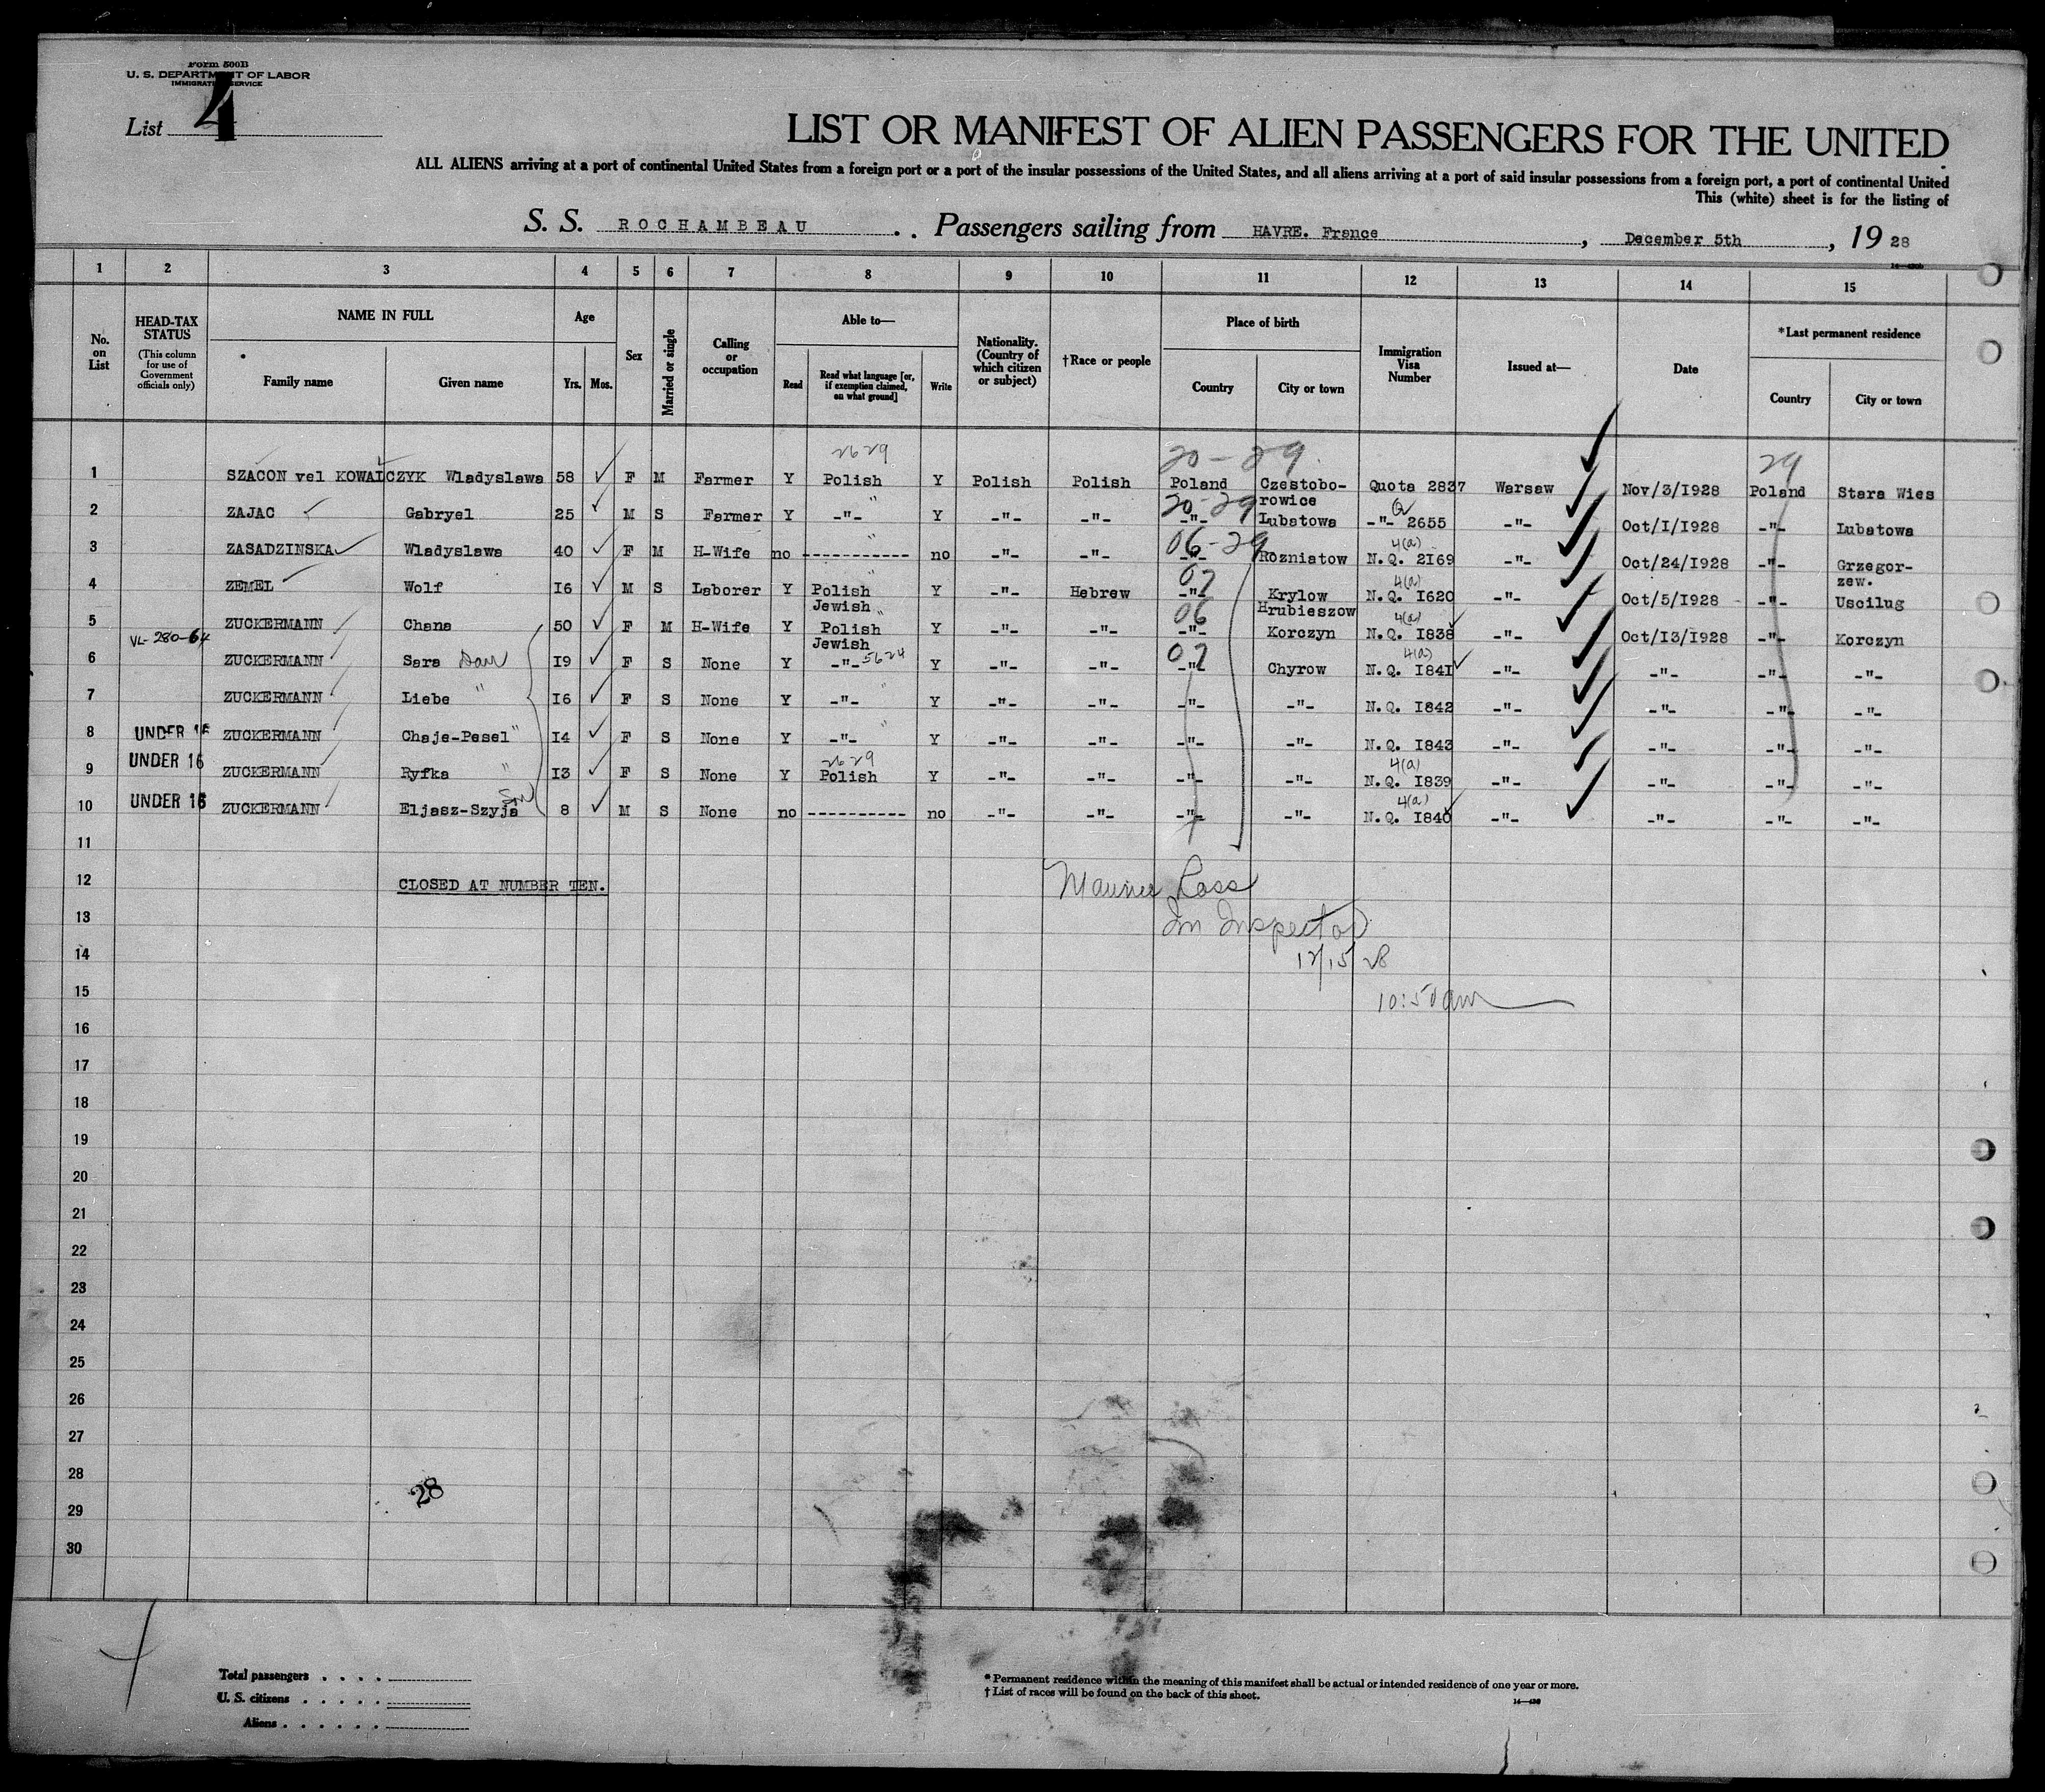 Form 500B
U. S. DEPARTMENT OF LABOR
IMMIGRATION SERVICE
List 4
LIST OR MANIFEST OF ALIEN PASSENGERS FOR THE UNITED
ALL ALIENS arriving at a port of continental United States from a foreign port or a port of the insular possessions of the United States, and all aliens arriving at a port of said insular possessions from a foreign port, a port of continental United
This (white) sheet is for the listing of
S. S. ROCHAMBEAU . . Passengers sailing from HAVRE. France , December 5th , 19 28
1 2 3 4 5 6 7 8 9 10 11 12 13 14 15
No. on List
HEAD-TAX STATUS (This column for use of Government officials only)
NAME IN FULL Family name Given name
Age Yrs. Mos.
Sex
Married or single
Calling or occupation
Able to— Read Read what language [or, if exemption claimed, on what ground] Write
Nationality. (Country of which citizen or subject)
†Race or people
Place of birth Country City or town
Immigration Visa Number
Issued at—
Date
*Last permanent residence Country City or town
2629 20-29. 29
1 SZACON vel KOWALCZYK Wladyslawa 58 F M Farmer Y Polish Y Polish Polish Poland Czestobo-rowice Quota 2837 Warsaw Nov/3/I928 Poland Stara Wies
" 20-29 Q
2 ZAJAC Gabryel 25 M S Farmer Y -"- Y -"- -"- -"- Lubatowa -"- 2655 -"- Oct/I/I928 -"- Lubatowa
" 06-29 4(a)
3 ZASADZINSKA Wladyslawa 40 F M H-Wife no ----------- no -"- -"- -"- Rozniatow N.Q. 2I69 -"- Oct/24/I928 -"- Grzegor-zew.
" 07 4(a)
4 ZEMEL Wolf I6 M S Laborer Y Polish Jewish Y -"- Hebrew -"- Krylow Hrubieszow N.Q. I620 -"- Oct/5/I928 -"- Uscilug
" 06 4(a)
5 VL-280-64 ZUCKERMANN Chana 50 F M H-Wife Y Polish Jewish Y -"- -"- -"- Korczyn N.Q. I838 -"- Oct/I3/I928 -"- Korczyn
07 4(a)
6 ZUCKERMANN Sara Dau I9 F S None Y -"- 5624 Y -"- -"- -"- Chyrow N.Q. I84I -"- -"- -"- -"-
7 ZUCKERMANN Liebe " I6 F S None Y -"- " Y -"- -"- -"- -"- N.Q. I842 -"- -"- -"- -"-
8 UNDER 16 ZUCKERMANN Chaje-Pesel " I4 F S None Y -"- " Y -"- -"- -"- -"- N.Q. I843 -"- -"- -"- -"-
2629 4(a)
9 UNDER 16 ZUCKERMANN Ryfka " I3 F S None Y Polish Y -"- -"- -"- -"- N.Q. I839 -"- -"- -"- -"-
4(a)
10 UNDER 16 ZUCKERMANN Eljasz-Szyja Son 8 M S None no ---------- no -"- -"- -"- -"- N.Q. I840 -"- -"- -"- -"-
11
12 CLOSED AT NUMBER TEN.
Ross
13
Im Inspector
14
12/15 28
15
10:50am
16
17
18
19
20
21
22
23
24
25
26
27
28
28
29
30
Total passengers . . . .
U. S. citizens . . . . .
Aliens . . . . . .
* Permanent residence within the meaning of this manifest shall be actual or intended residence of one year or more.
† List of races will be found on the back of this sheet.